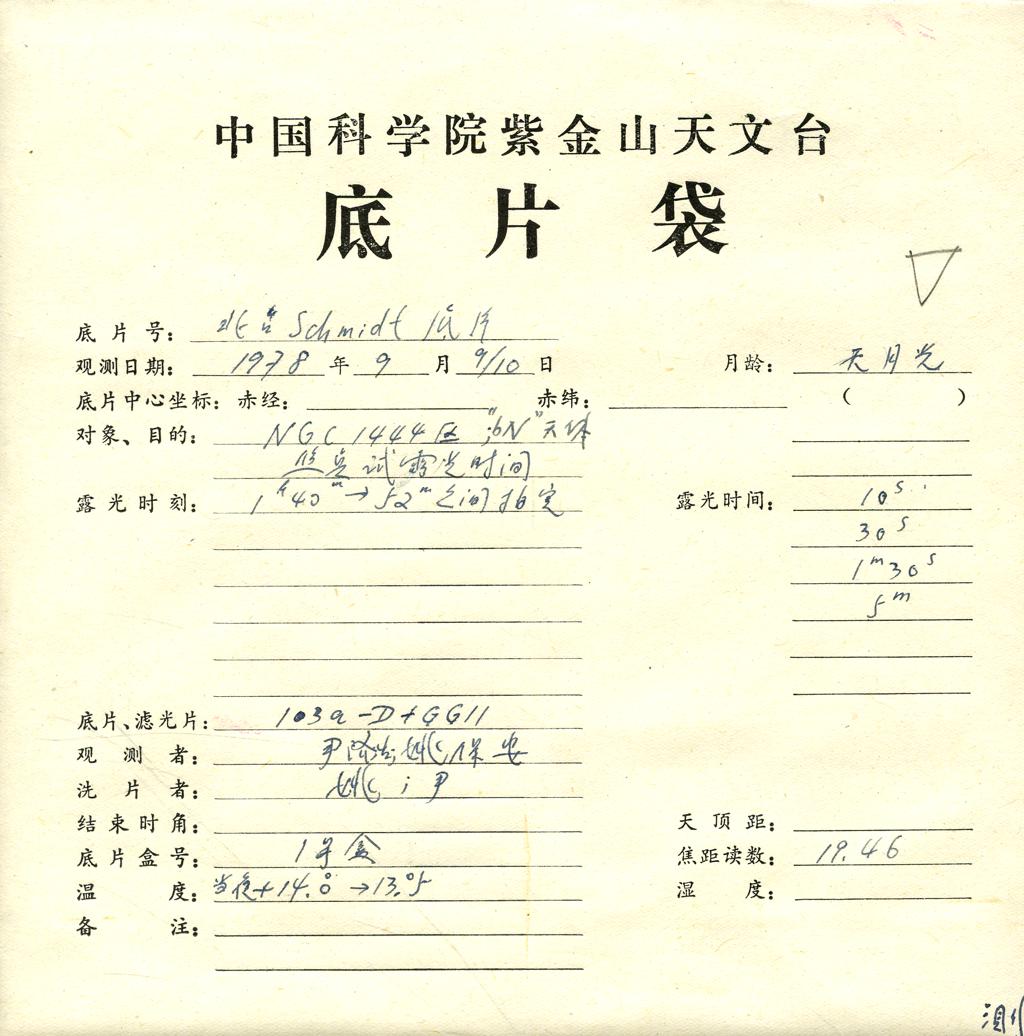 中国科学院紫金山天文台
底片袋
底片号： Schmidt 底片
观测日期： 1978 年 9 月 9/10 日 月龄： 无月光
底片中心坐标：赤经： 赤纬： （ ）
对象、目的： NGC 1444区 天体
试露光时间
露光时刻： 1ʰ40ᵐ→52ᵐ之间拍完 露光时间： 10ˢ
30ˢ
1ᵐ30ˢ
5ᵐ
底片、滤光片： 103a-D+GG11
观测者： 尹 姚保安
洗片者： 姚；尹
结束时角： 天顶距：
底片盒号： 1号盒 焦距读数： 19.46
温度： 当夜+14.°0→13.°5 湿度：
备注：